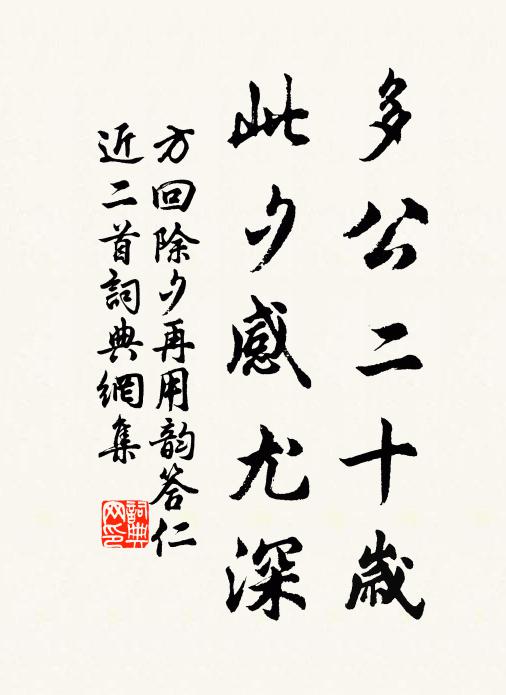 多公二十歲
此夕感尤深
方回除夕再用韵答仁
近二首詞典網集
詞典网印